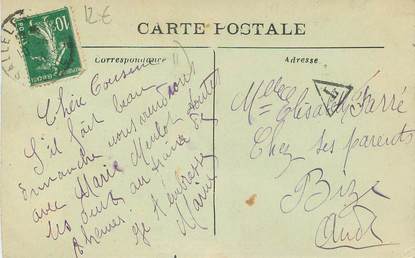 12€
CARTE POSTALE
Correspondance
Adresse
10
Chère Cousine
S'il fait beau
dimanche nous viendrons
avec Marie Merlot toutes
les deux au train de
8 heures. Je t'embrasse
Maria
Melle Elisabeth Farré
Chez ses parents
Bize
Aude